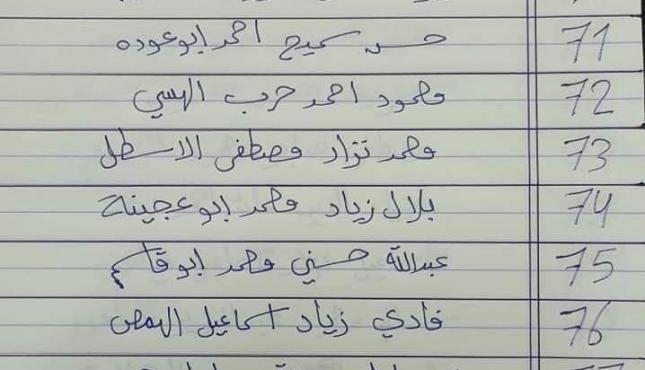 71 حسن سميح احمد ابو عوده
72 محمود احمد حرب الهسي
73 محمد نزاد مصطفى الاسطل
74 بلال زياد محمد ابو عجينة
75 عبدالله حسني محمد ابو قاسم
76 فادي زياد اسماعيل الهمص